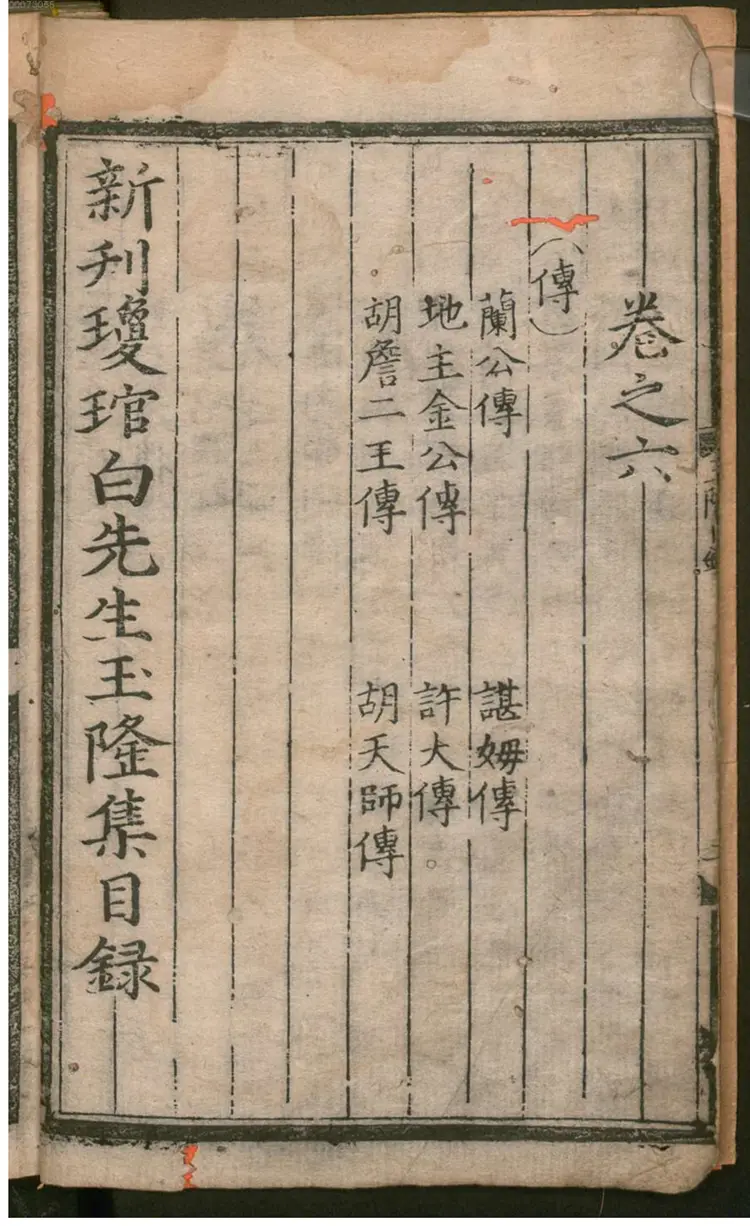 卷之六
(傳)
蘭公傳 諶姆傳
地主金公傳 許大傳
胡詹二王傳 胡天師傳
新刋瓊琯白先生玉隆集目録